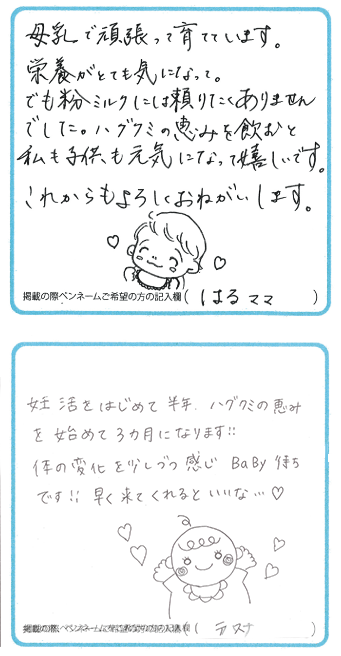 母乳で頑張って育てています。
栄養がとても気になって。
でも粉ミルクには頼りたくありません
でした。ハグクミの恵みを飲むと
私も子供も元気になって嬉しいです。
これからもよろしくおねがいします。
掲載の際ペンネームご希望の方の記入欄( はるママ )
妊活をはじめて半年、ハグクミの恵み
を始めて3カ月になります!!
体の変化を少しづつ感じ BaBy 待ち
です!! 早く来てくれるといいな…♡
掲載の際ペンネームご希望の方の記入欄(